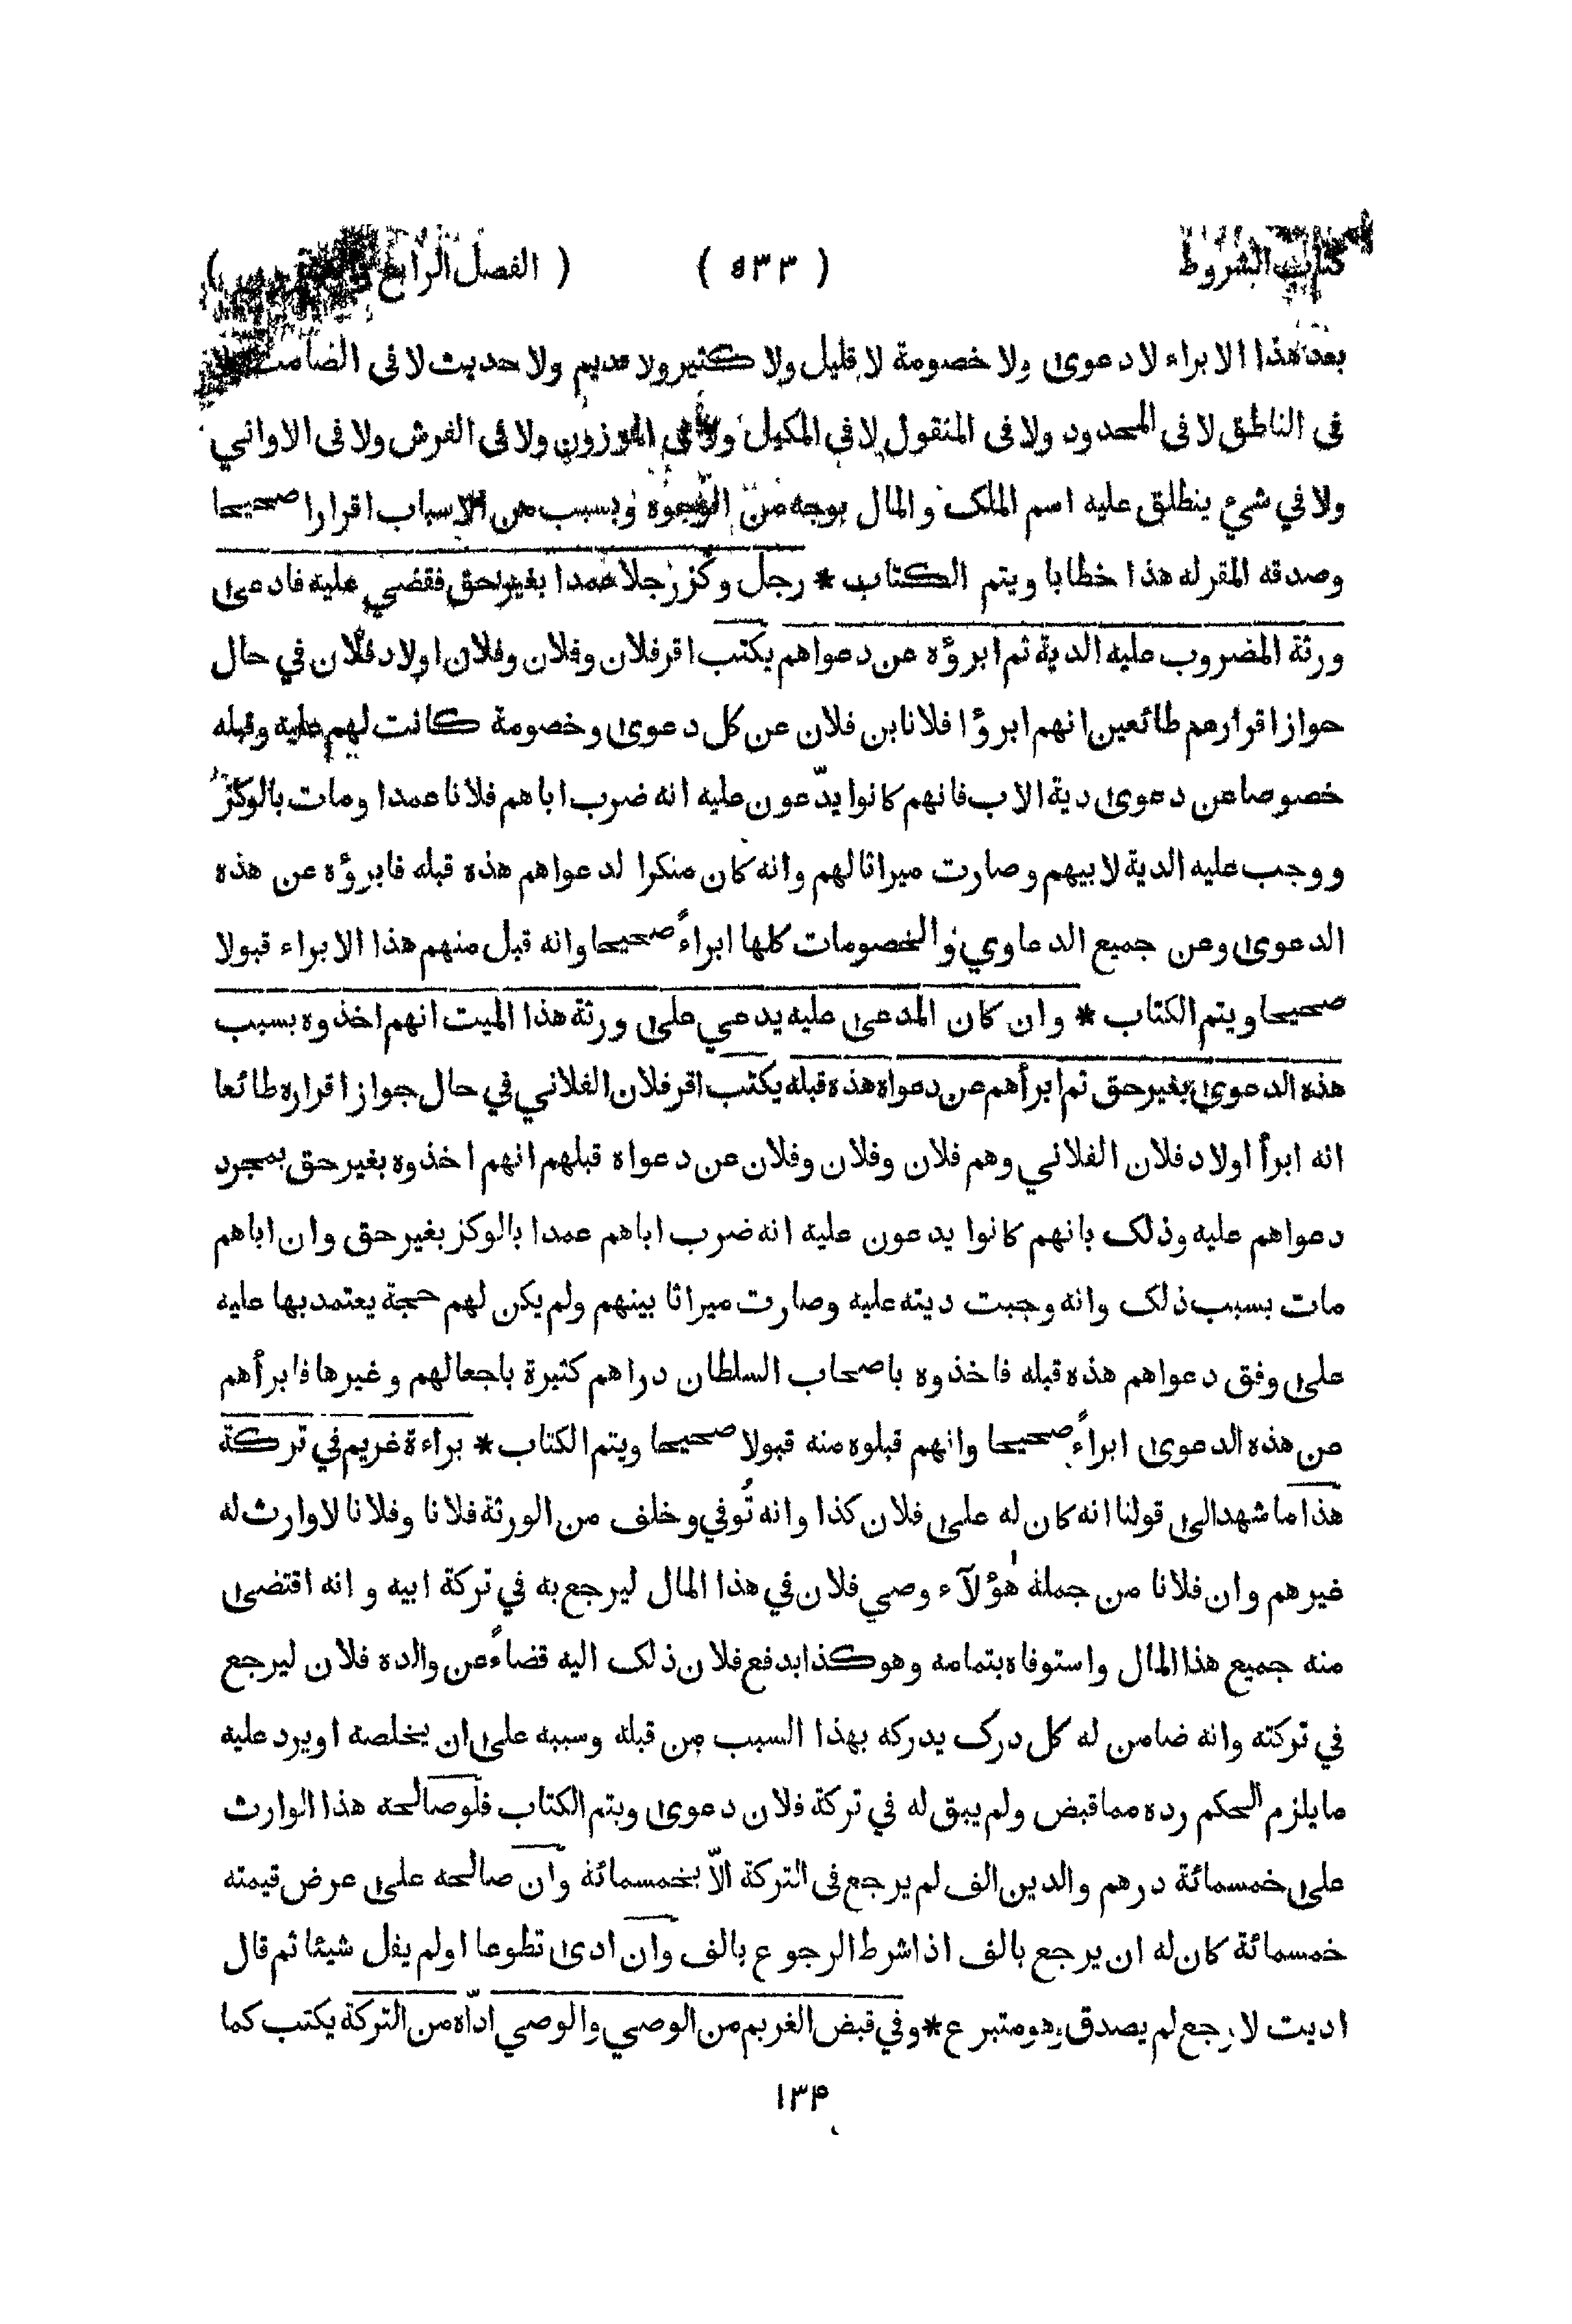 كتاب الشروط ( ٥٣٣ ) ( الفصل الرابع )
بعد هذا الابراء لا دعوى ولا خصومة لا قليل ولا كثير ولا قديم ولا حديث لا في الضامت ولا
في الناطق لا في المحدود ولا في المنقول لا في المكيل ولا في الموزون ولا في الفرش ولا في الاواني
ولا في شيء ينطلق عليه اسم الملك والمال بوجه من الوجوه وبسبب من الاسباب اقرارا صحيحا
وصدقه المقر له هذا خطابا ويتم الكتاب * رجل وكز رجلا عمدا بغير حق فقضي عليه فادعى
ورثة المضروب عليه الدية ثم ابرؤه عن دعواهم يكتب اقر فلان وفلان وفلان اولاد فلان في حال
جواز اقرارهم طائعين انهم ابرؤا فلانا بن فلان عن كل دعوى وخصومة كانت لهم عليه وقبله
خصوصا عن دعوى دية الاب فانهم كانوا يدّعون عليه انه ضرب اباهم فلانا عمدا ومات بالوكز
ووجب عليه الدية لابيهم وصارت ميراثا لهم وانه كان منكرا لدعواهم هذه قبله فابرؤه عن هذه
الدعوى وعن جميع الدعاوي والخصومات كلها ابراءً صحيحا وانه قبل منهم هذا الابراء قبولا
صحيحا ويتم الكتاب * وان كان المدعى عليه يدعي على ورثة هذا الميت انهم اخذوه بسبب
هذه الدعوى بغير حق ثم ابرأهم عن دعواه هذه قبله يكتب اقر فلان الفلاني في حال جواز اقراره طائعا
انه ابرأ اولاد فلان الفلاني وهم فلان وفلان وفلان عن دعواه قبلهم انهم اخذوه بغير حق بمجرد
دعواهم عليه وذلك بانهم كانوا يدعون عليه انه ضرب اباهم عمدا بالوكز بغير حق وان اباهم
مات بسبب ذلك وانه وجبت ديته عليه وصارت ميراثا بينهم ولم يكن لهم حجة يعتمد بها عليه
على وفق دعواهم هذه قبله فاخذوه باصحاب السلطان دراهم كثيرة باجعالهم وغيرها فابرأهم
عن هذه الدعوى ابراءً صحيحا وانهم قبلوه منه قبولا صحيحا ويتم الكتاب * براءة غريم في تركة
هذا ما شهد الى قولنا انه كان له على فلان كذا وانه تُوفي وخلف من الورثة فلانا وفلانا لا وارث له
غيرهم وان فلانا من جملة هؤلآء وصي فلان في هذا المال ليرجع به في تركة ابيه وانه اقتضى
منه جميع هذا المال واستوفاه بتمامه وهو كذا بدفع فلان ذلك اليه قضاءً عن والده فلان ليرجع
في تركته وانه ضامن له كل درك يدركه بهذا السبب من قبله وسببه على ان يخلصه او يرد عليه
ما يلزم الحكم رده مما قبض ولم يبق له في تركة فلان دعوى ويتم الكتاب فلو صالحه هذا الوارث
على خمسمائة درهم والدين الف لم يرجع في التركة الاّ بخمسمائة وان صالحه على عرض قيمته
خمسمائة كان له ان يرجع بالف اذا شرط الرجوع بالف وان ادى تطوعا او لم يفل شيئا ثم قال
اديت لا رجع لم يصدق وهو متبرع * وفي قبض الغريم من الوصي والوصي ادّاه من التركة يكتب كما
١٣۴